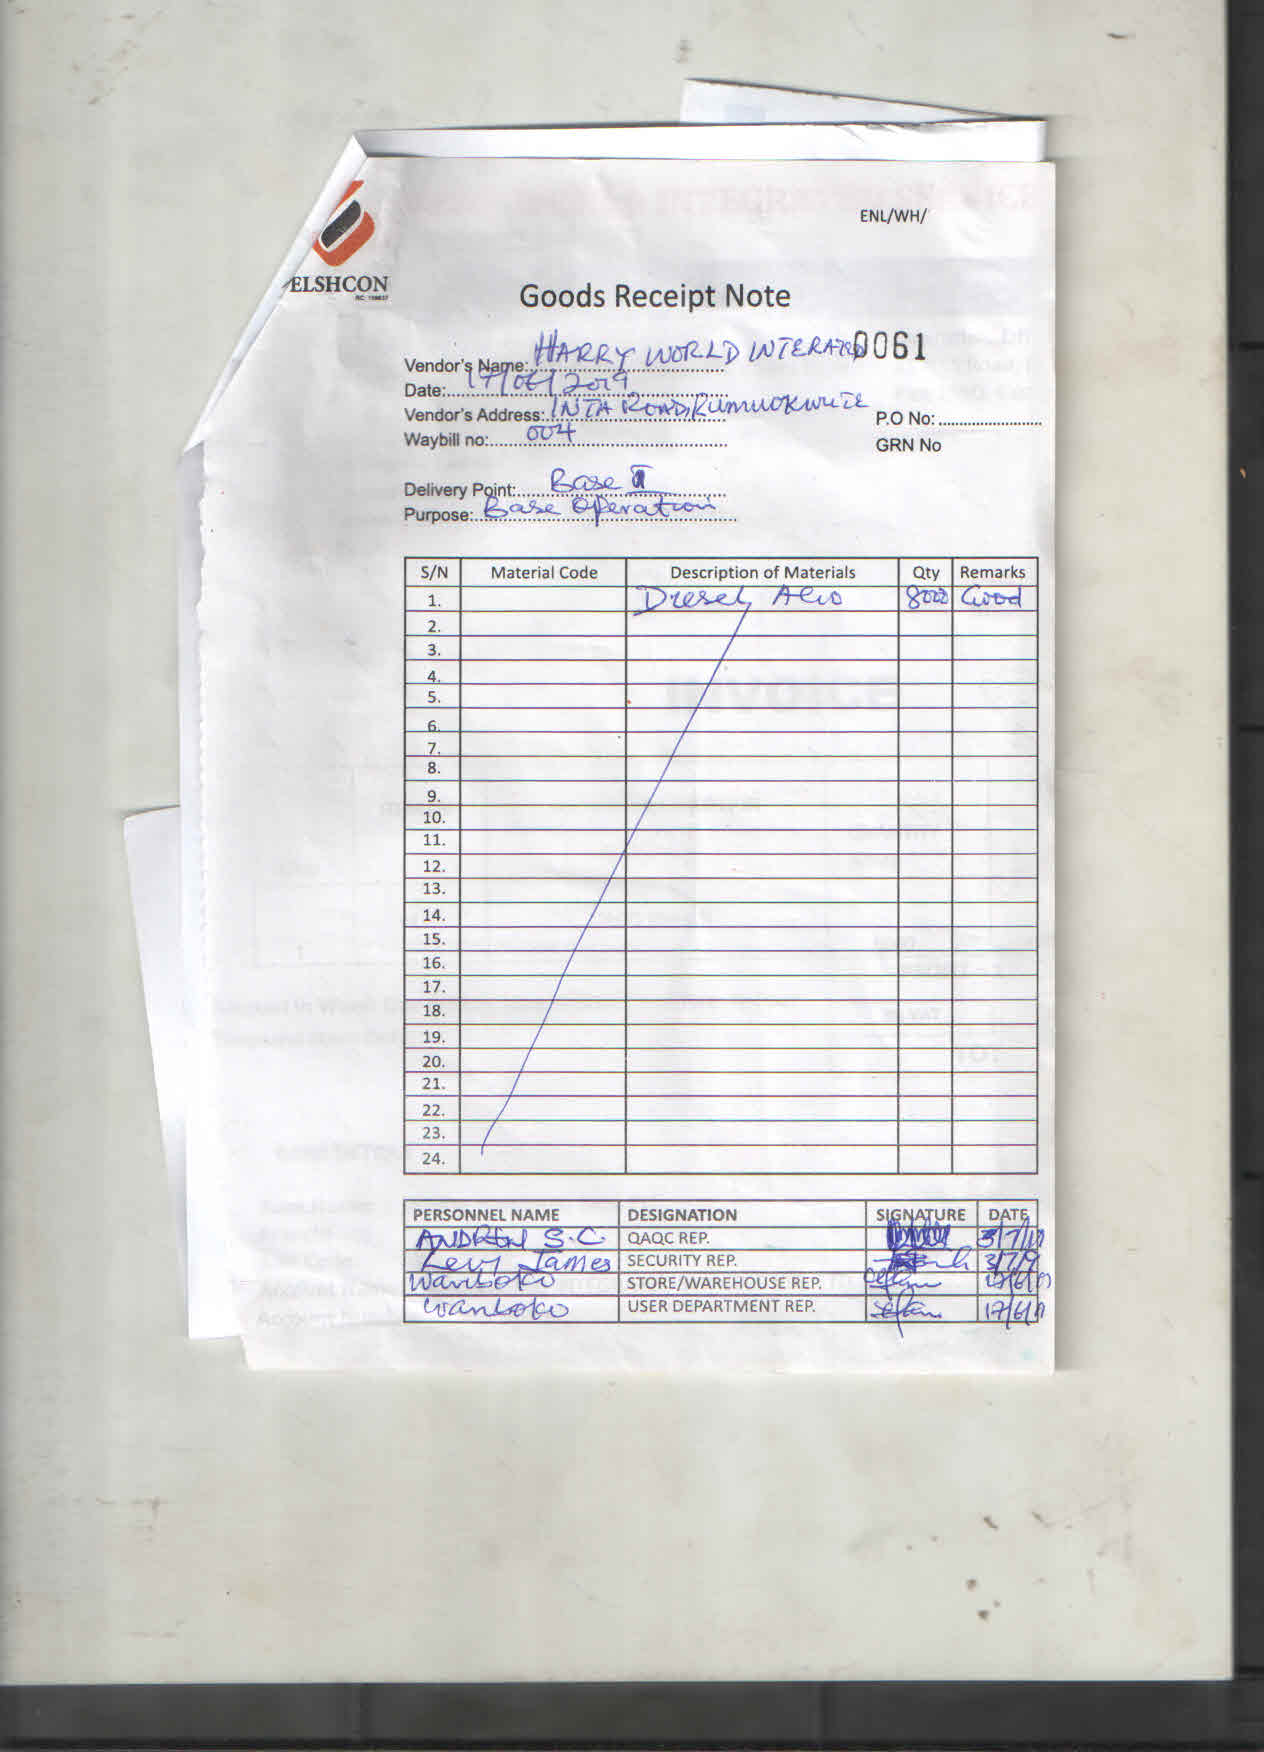 ENL/WH/
ELSHCON
RC:
Goods Receipt Note
0061
Vendor's Name: HARRY WORLD INTERATED
Date: 17/06/2019
Vendor's Address: INTA ROAD, RUMUOKWUTE
P.O No:
Waybill no: 004
GRN No
Delivery Point: Base II
Purpose: Base Operation
S/N Material Code Description of Materials Qty Remarks
1. Diesel, AGO 8000 Good
2.
3.
4.
5.
6.
7.
8.
9.
10.
11.
12.
13.
14.
15.
16.
17.
18.
19.
20.
21.
22.
23.
24.
PERSONNEL NAME DESIGNATION SIGNATURE DATE
ANDREW S.C QAQC REP. 3/7/19
Levi James SECURITY REP. 3/7/19
Wariboko STORE/WAREHOUSE REP. 17/6/19
Wariboko USER DEPARTMENT REP. 17/6/19